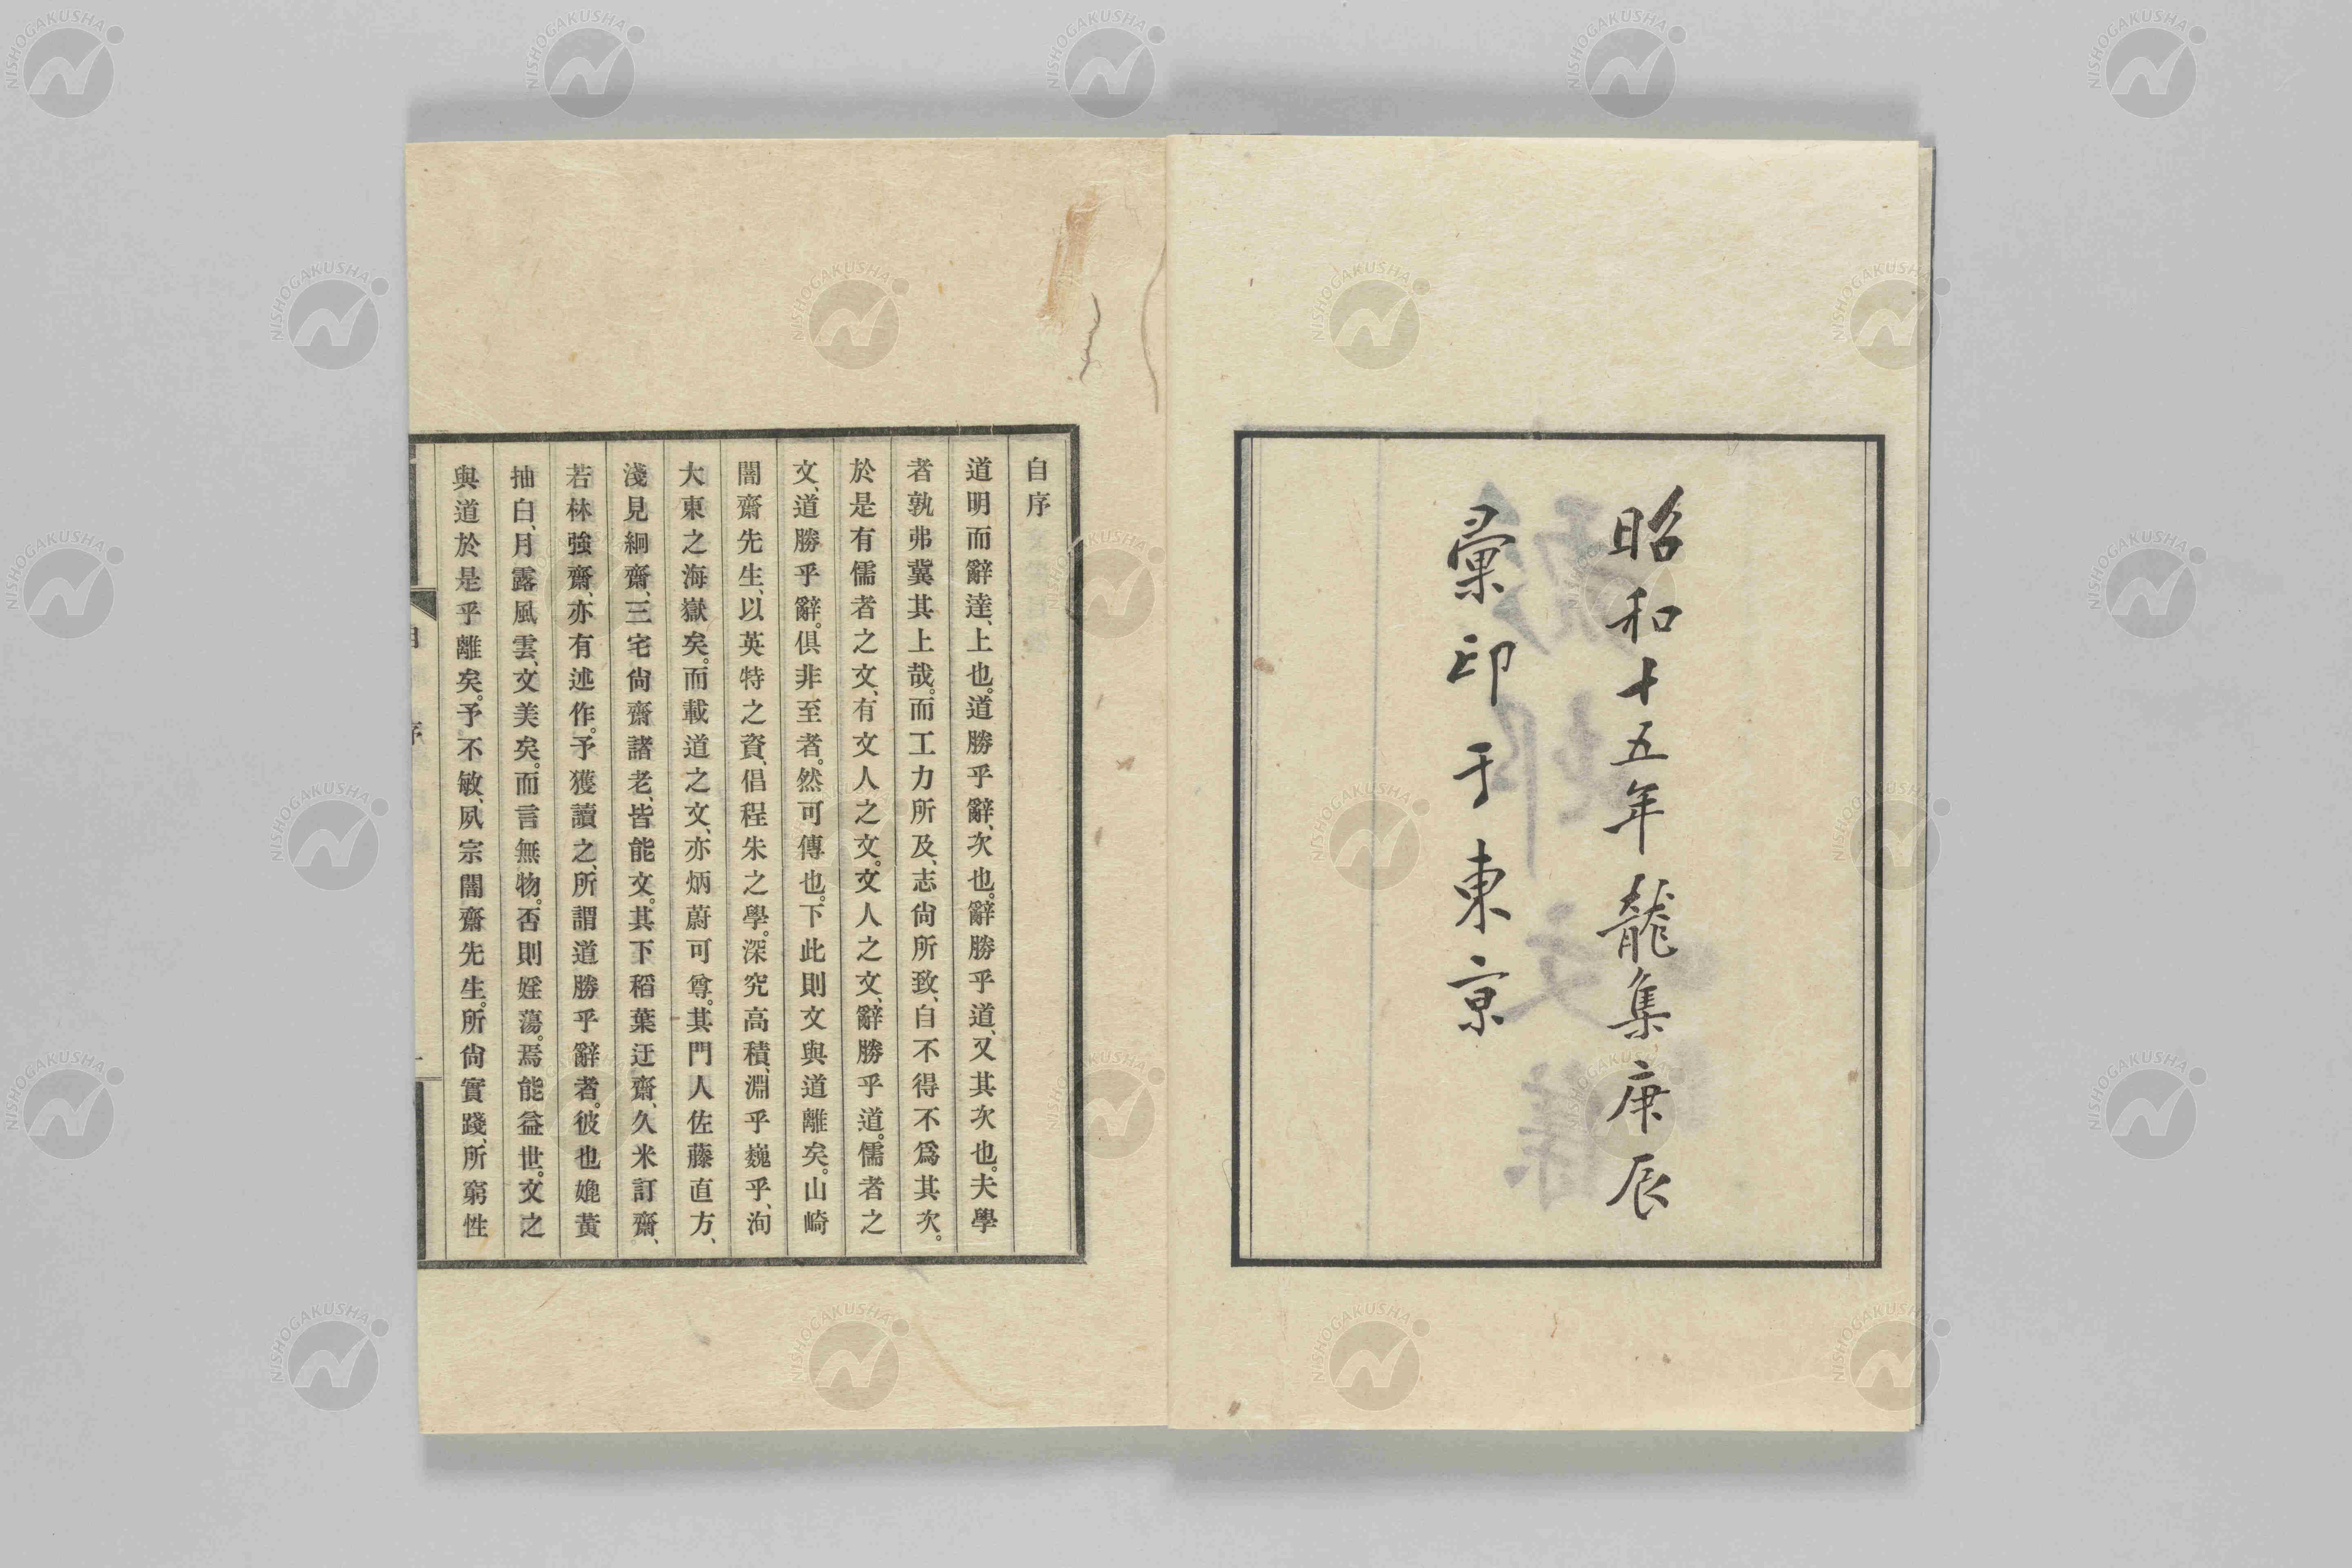 昭和十五年龍集庚辰
彙印于東京
自序
道明而辭達、上也。道勝乎辭、次也。辭勝乎道、又其次也。夫學
者孰弗冀其上哉。而工力所及、志尙所致、自不得不爲其次。
於是有儒者之文、有文人之文。文人之文、辭勝乎道。儒者之
文、道勝乎辭。俱非至者。然可傳也。下此則文與道離矣。山崎
闇齋先生、以英特之資、倡程朱之學。深究高積、淵乎巍乎、洵
大東之海嶽矣。而載道之文、亦炳蔚可尊。其門人佐藤直方、
淺見絅齋、三宅尙齋諸老、皆能文。其下稻葉迂齋、久米訂齋、
若林強齋、亦有述作。予獲讀之、所謂道勝乎辭者。彼也媲黃
抽白、月露風雲、文美矣。而言無物。否則婬蕩。焉能益世。文之
與道於是乎離矣。予不敏、夙宗闇齋先生。所尙實踐、所窮性
序
NISHOGAKUSHA